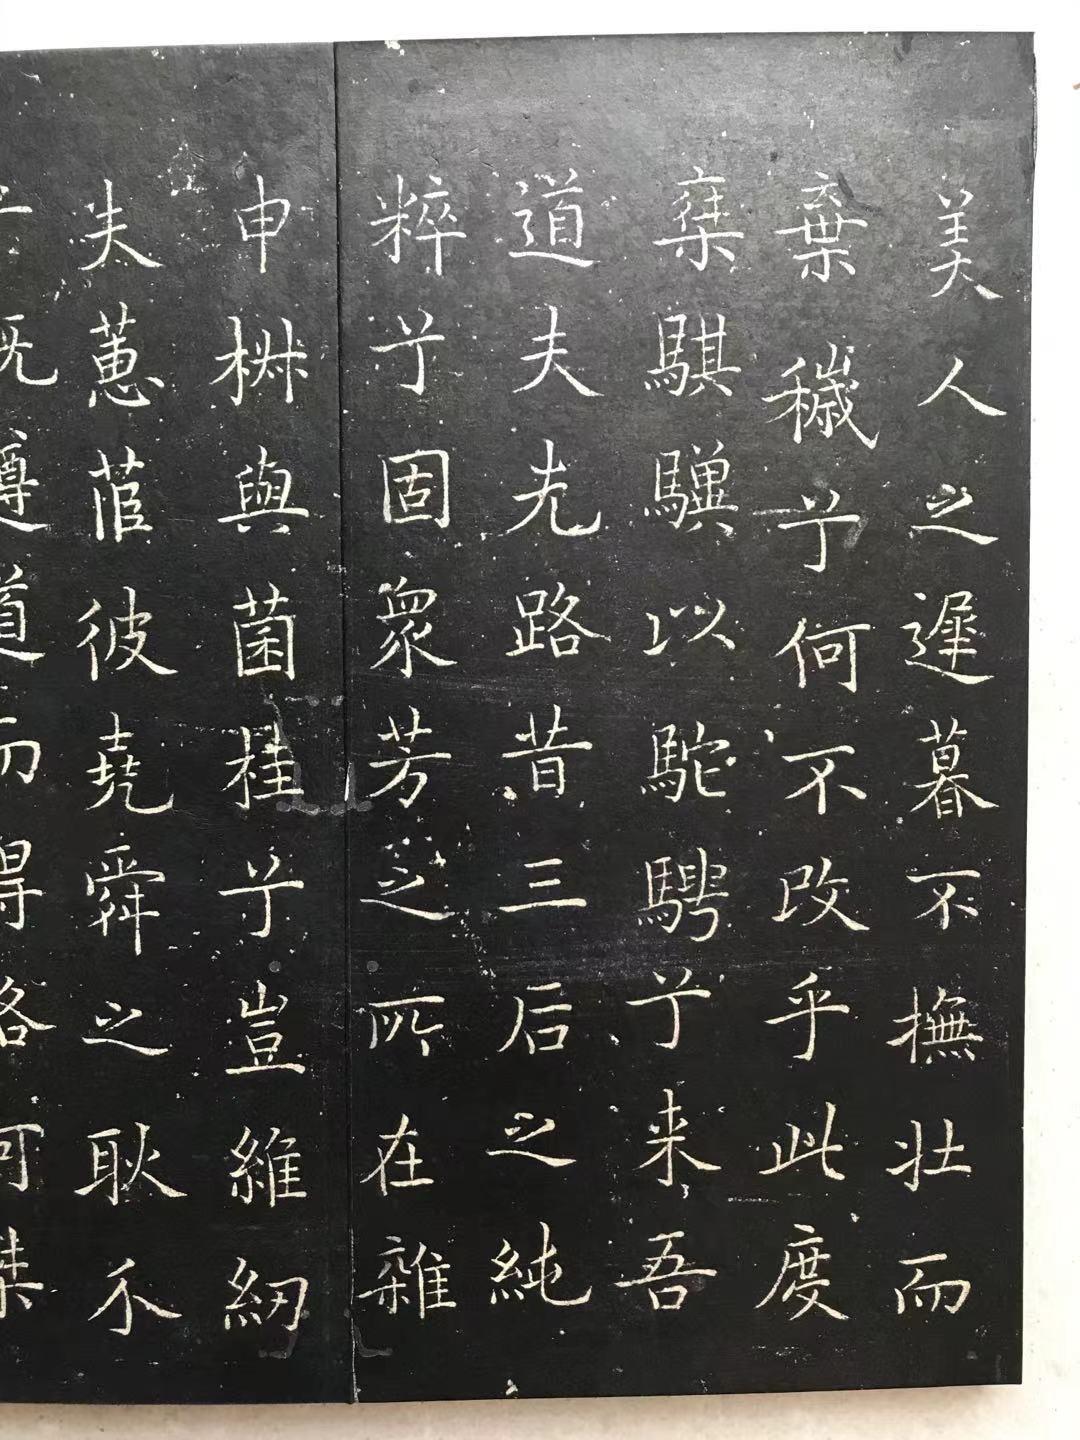 美人之遲暮不撫壯而
棄穢兮何不改乎此度
椉騏驥以駝騁兮来吾
道夫先路昔三后之純
粹兮固衆芳之所在雜
申椒與菌桂兮豈維紉
夫蕙茝彼堯舜之耿介
兮既遵道而得路何桀